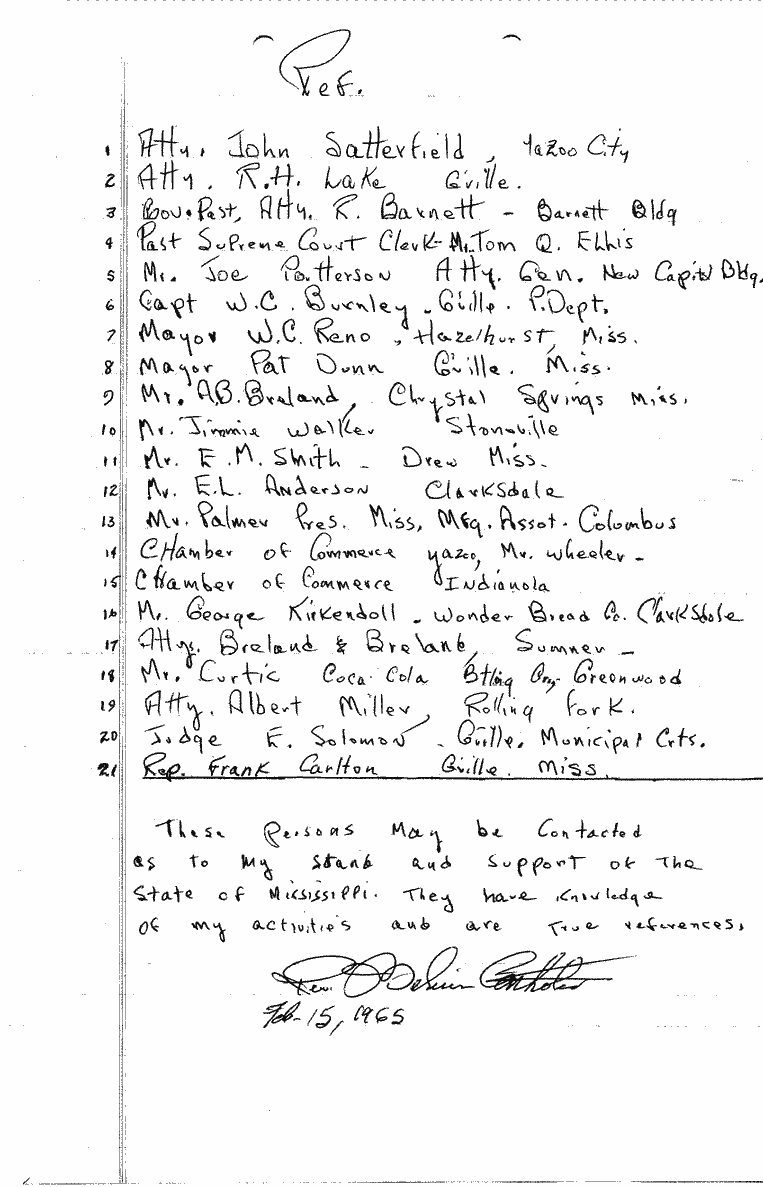 Ref.
1 Atty. John Satterfield, Yazoo City
2 Atty. R.H. Lake G'ville.
3 Gov. Past, Atty. R. Barnett - Barnett Bldg
4 Past Supreme Court Clerk - Mr. Tom Q. Ellis
5 Mr. Joe Patterson Atty. Gen. New Capitol Bldg.
6 Capt W.C. Burnley - G'ville. P. Dept.
7 Mayor W.C. Reno, Hazelhurst, Miss.
8 Mayor Pat Dunn G'ville. Miss.
9 Mr. A.B. Breland, Chrystal Springs Miss.
10 Mr. Jimmie Walker Stoneville
11 Mr. E.M. Smith - Drew Miss.
12 Mr. E.L. Anderson Clarksdale
13 Mr. Palmer Pres. Miss. Mfg. Assot. Columbus
14 CHamber of Commerce yazoo, Mr. Wheeler -
15 CHamber of Commerce Indianola
16 Mr. George Kirkendoll - Wonder Bread Co. Clarksdale
17 Attys. Breland & Breland, Sumner -
18 Mr. Curtic Coca-Cola Btling Greenwood
19 Atty. Albert Miller, Rolling Fork.
20 Judge E. Solomon - G'ville. Municipal Crts.
21 Rep. Frank Carlton G'ville. Miss.
These persons May be Contacted
as to My stand and support of The
State of Mississippi. They have Knowledge
Of my activities and are True references.
Rev.
Feb-15, 1965